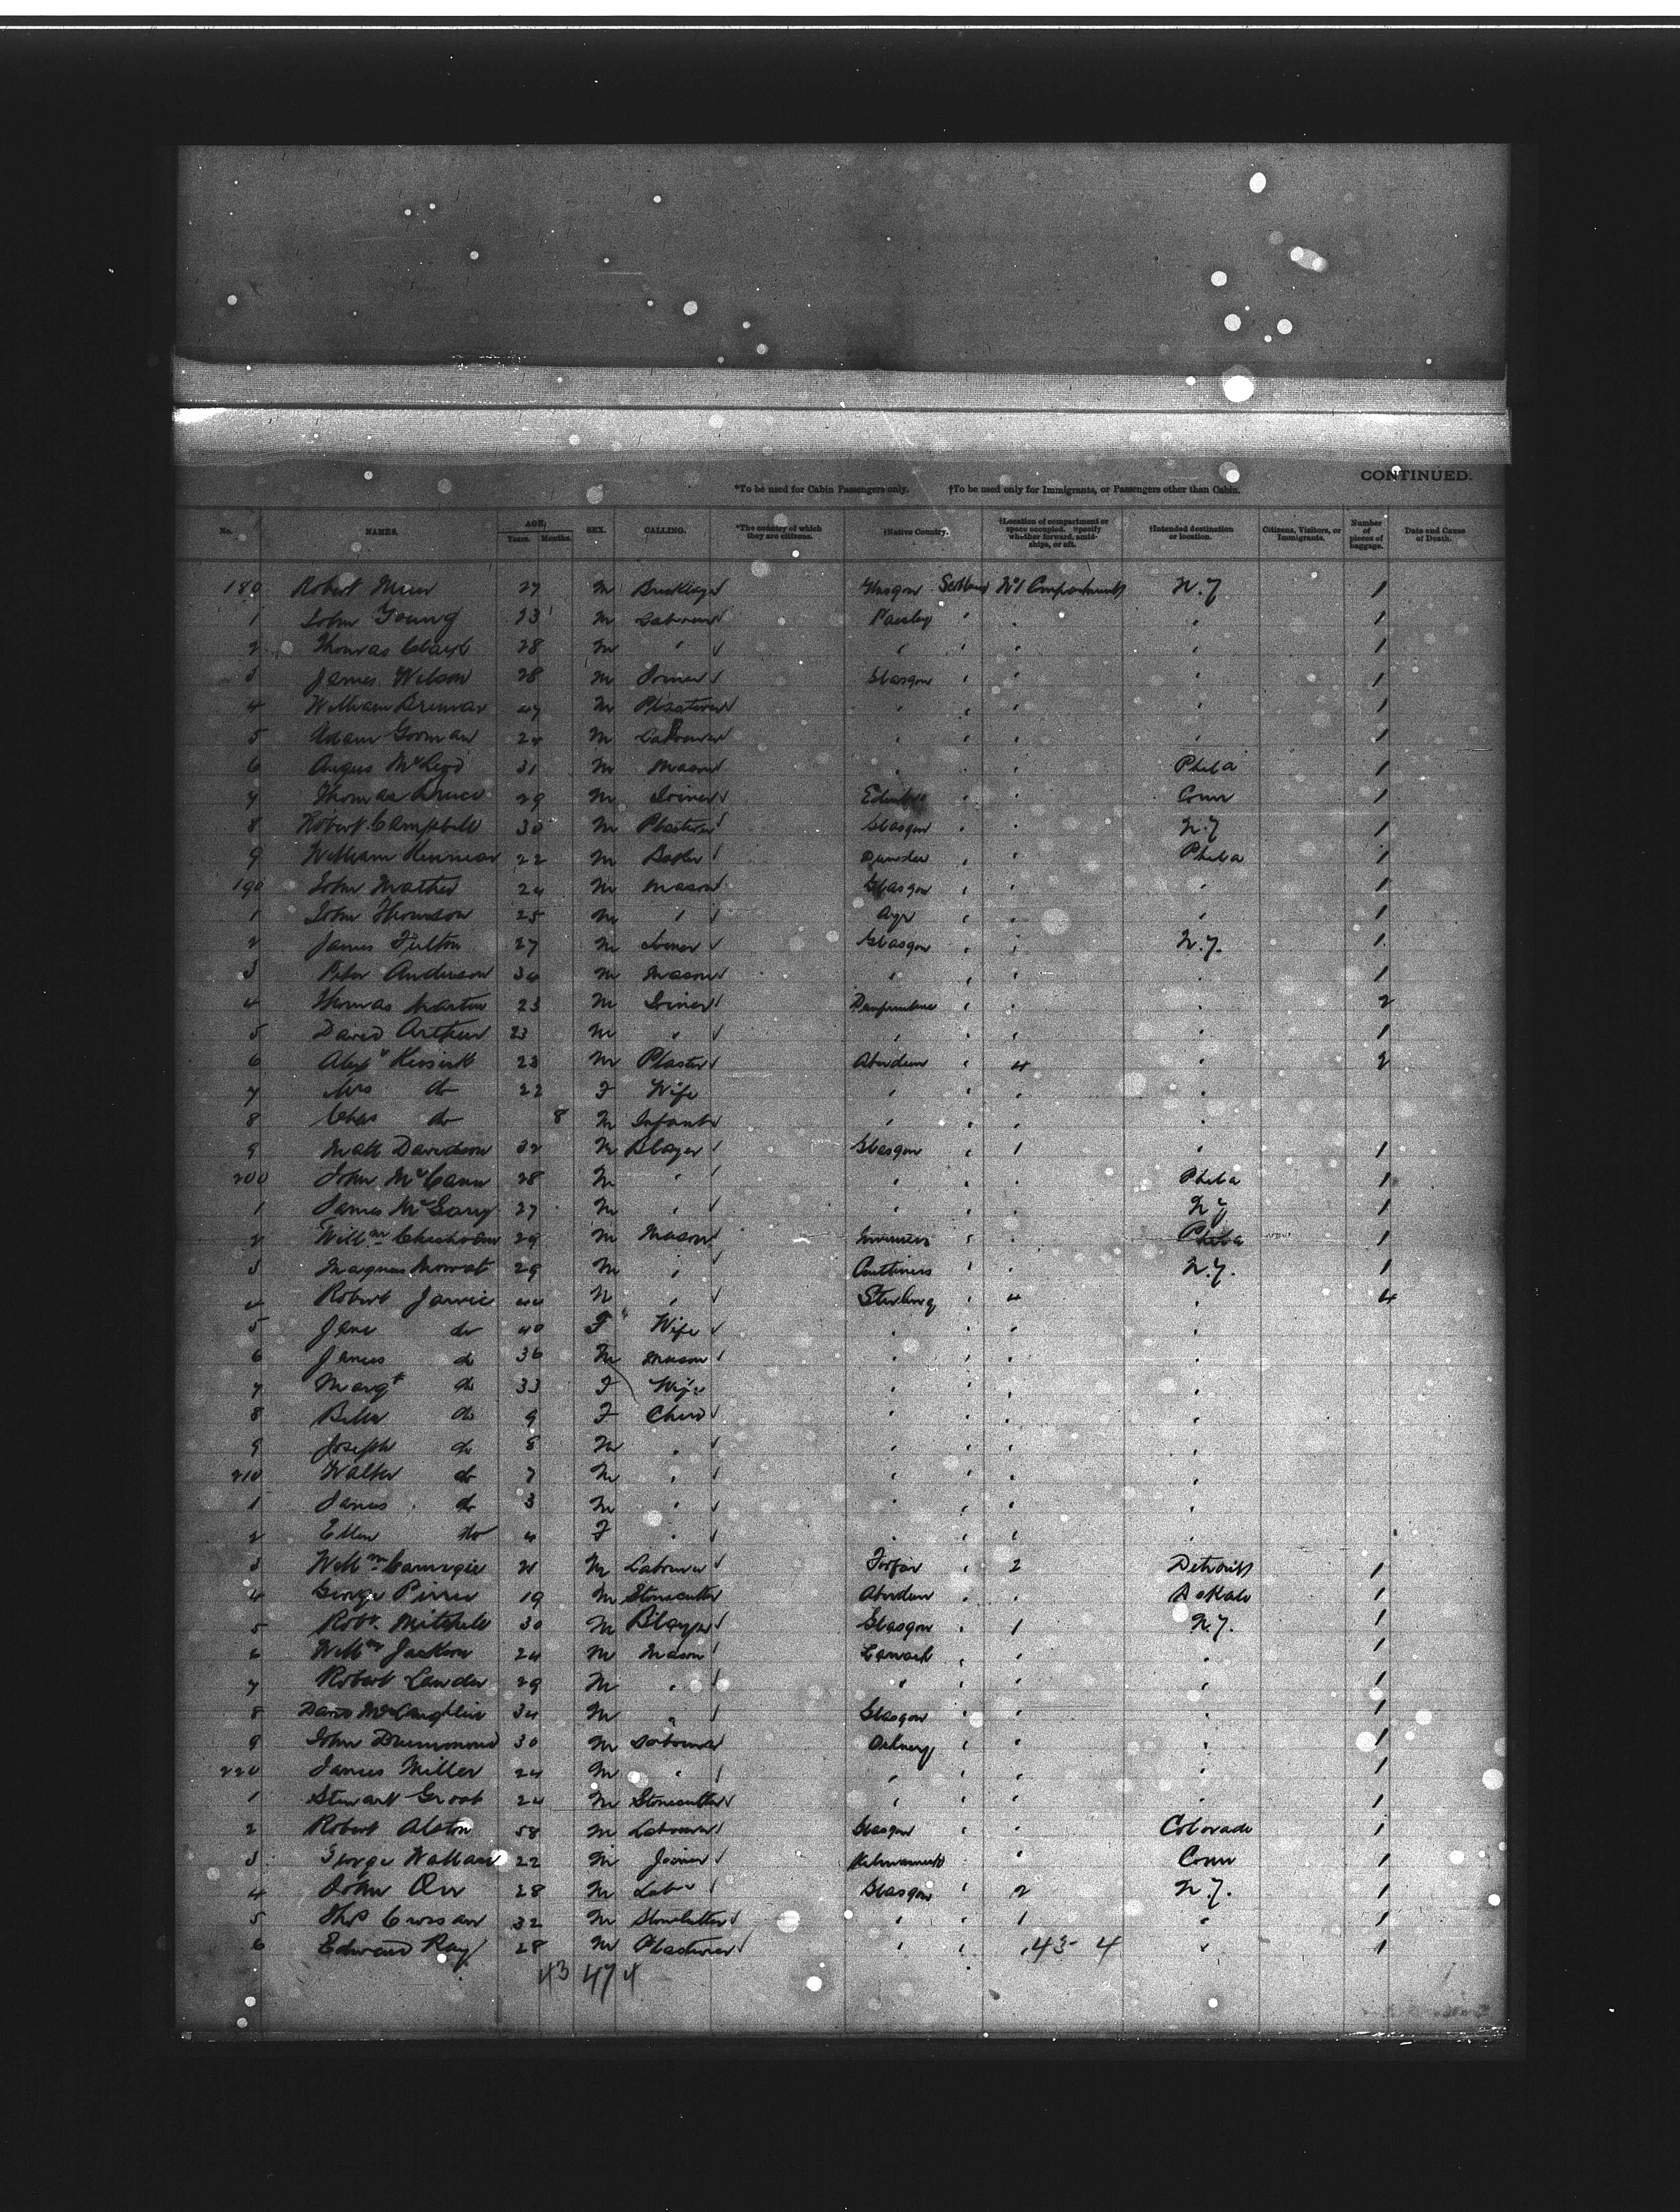 CONTINUED.
*To be used for Cabin Passengers only. †To be used only for Immigrants, or Passengers other than Cabin.
No. NAMES. AGE, Years. Months. SEX. CALLING. *The country of which they are citizens. †Native Country. †Location of compartment or space occupied. Specify whether forward, amidships, or aft. †Intended destination or location. Citizens, Visitors, or Immigrants. Number of pieces of baggage. Date and Cause of Death.
180 Robert Muir 27 M Glasgow Scotland No 1 Compartment N.Y 1
1 John Young 23 M Labourer Paisley " " " 1
2 Thomas Clark 28 M " " " " " 1
3 James Wilson 28 M Joiner Glasgow " " " 1
4 William M Plasterer " " " " 1
5 Adam Gorman 24 M Labourer " " " " 1
6 Angus 31 M Mason " " Phila 1
7 Thomas 29 M Joiner " " Conn 1
8 Robert Campbell 30 M Plasterer Glasgow " " N.Y 1
9 William 22 M Dundee " " Phila 1
190 John Mather 24 M Mason Glasgow " " " 1
1 John Thomson 25 M " Ayr " " " 1
2 James Fulton 27 M Joiner Glasgow " " N.Y. 1
3 Peter Anderson M Mason " " " " 1
4 Thomas Martin 23 M Joiner " " " 2
5 David Arthur 23 M " " " " " 1
6 Alexr 23 M Plaster Aberdeen " 4 " 2
7 Mrs do 22 F Wife " " " "
8 Chas do 8 M Infant " " " "
9 Matt Davidson 32 M Blayer Glasgow " 1 " 1
200 John McCann 28 M " " " " Phila 1
1 James McGarry 27 M " " " " N.Y 1
2 Willm Chisholm 29 M Mason Inverness " " Phila 1
3 Magnus Mowat 29 M " " " N.Y. 1
4 Robert Jarvie 44 M " Stirling " 4 " 4
5 Jane do 40 F Wife " " " "
6 James do 36 M Mason " " " "
7 Margt do 33 F Wife " " " "
8 Bella do 9 F Child " " " "
9 Joseph do 8 M " " " " "
210 Walter do 7 M " " " " "
1 James do 3 M " " " " "
2 Ellen do 4 F " " " " "
3 Willm Carnegie 21 M Labourer Forfar " 2 Detroit 1
4 George Pirrie 19 M Stonecutter Aberdeen " " 1
5 Robt. Mitchell 30 M Blayer Glasgow " 1 N.Y. 1
6 Willm Jackson 24 M Mason Lanark " " " 1
7 Robert Lauder 29 M " " " " " 1
8 David McLaughlin 34 M " Glasgow " " " 1
9 John Drummond 30 M Labourer Orkney " " " 1
220 James Miller 24 M " " " " " 1
1 Stewart Groat 24 M Stonecutter " " " " 1
2 Robert Alston 58 M Labourer Glasgow " " Colorado 1
3 George Wallace 22 M Joiner Kilmarnock " Conn 1
4 John Orr 28 M Labr Glasgow " 2 N.Y. 1
5 Thos Crossan 32 M Stonecutter " " 1 " 1
6 Edward Ray 28 M Plasterer " " 43 - 4 " 1
43 47 4